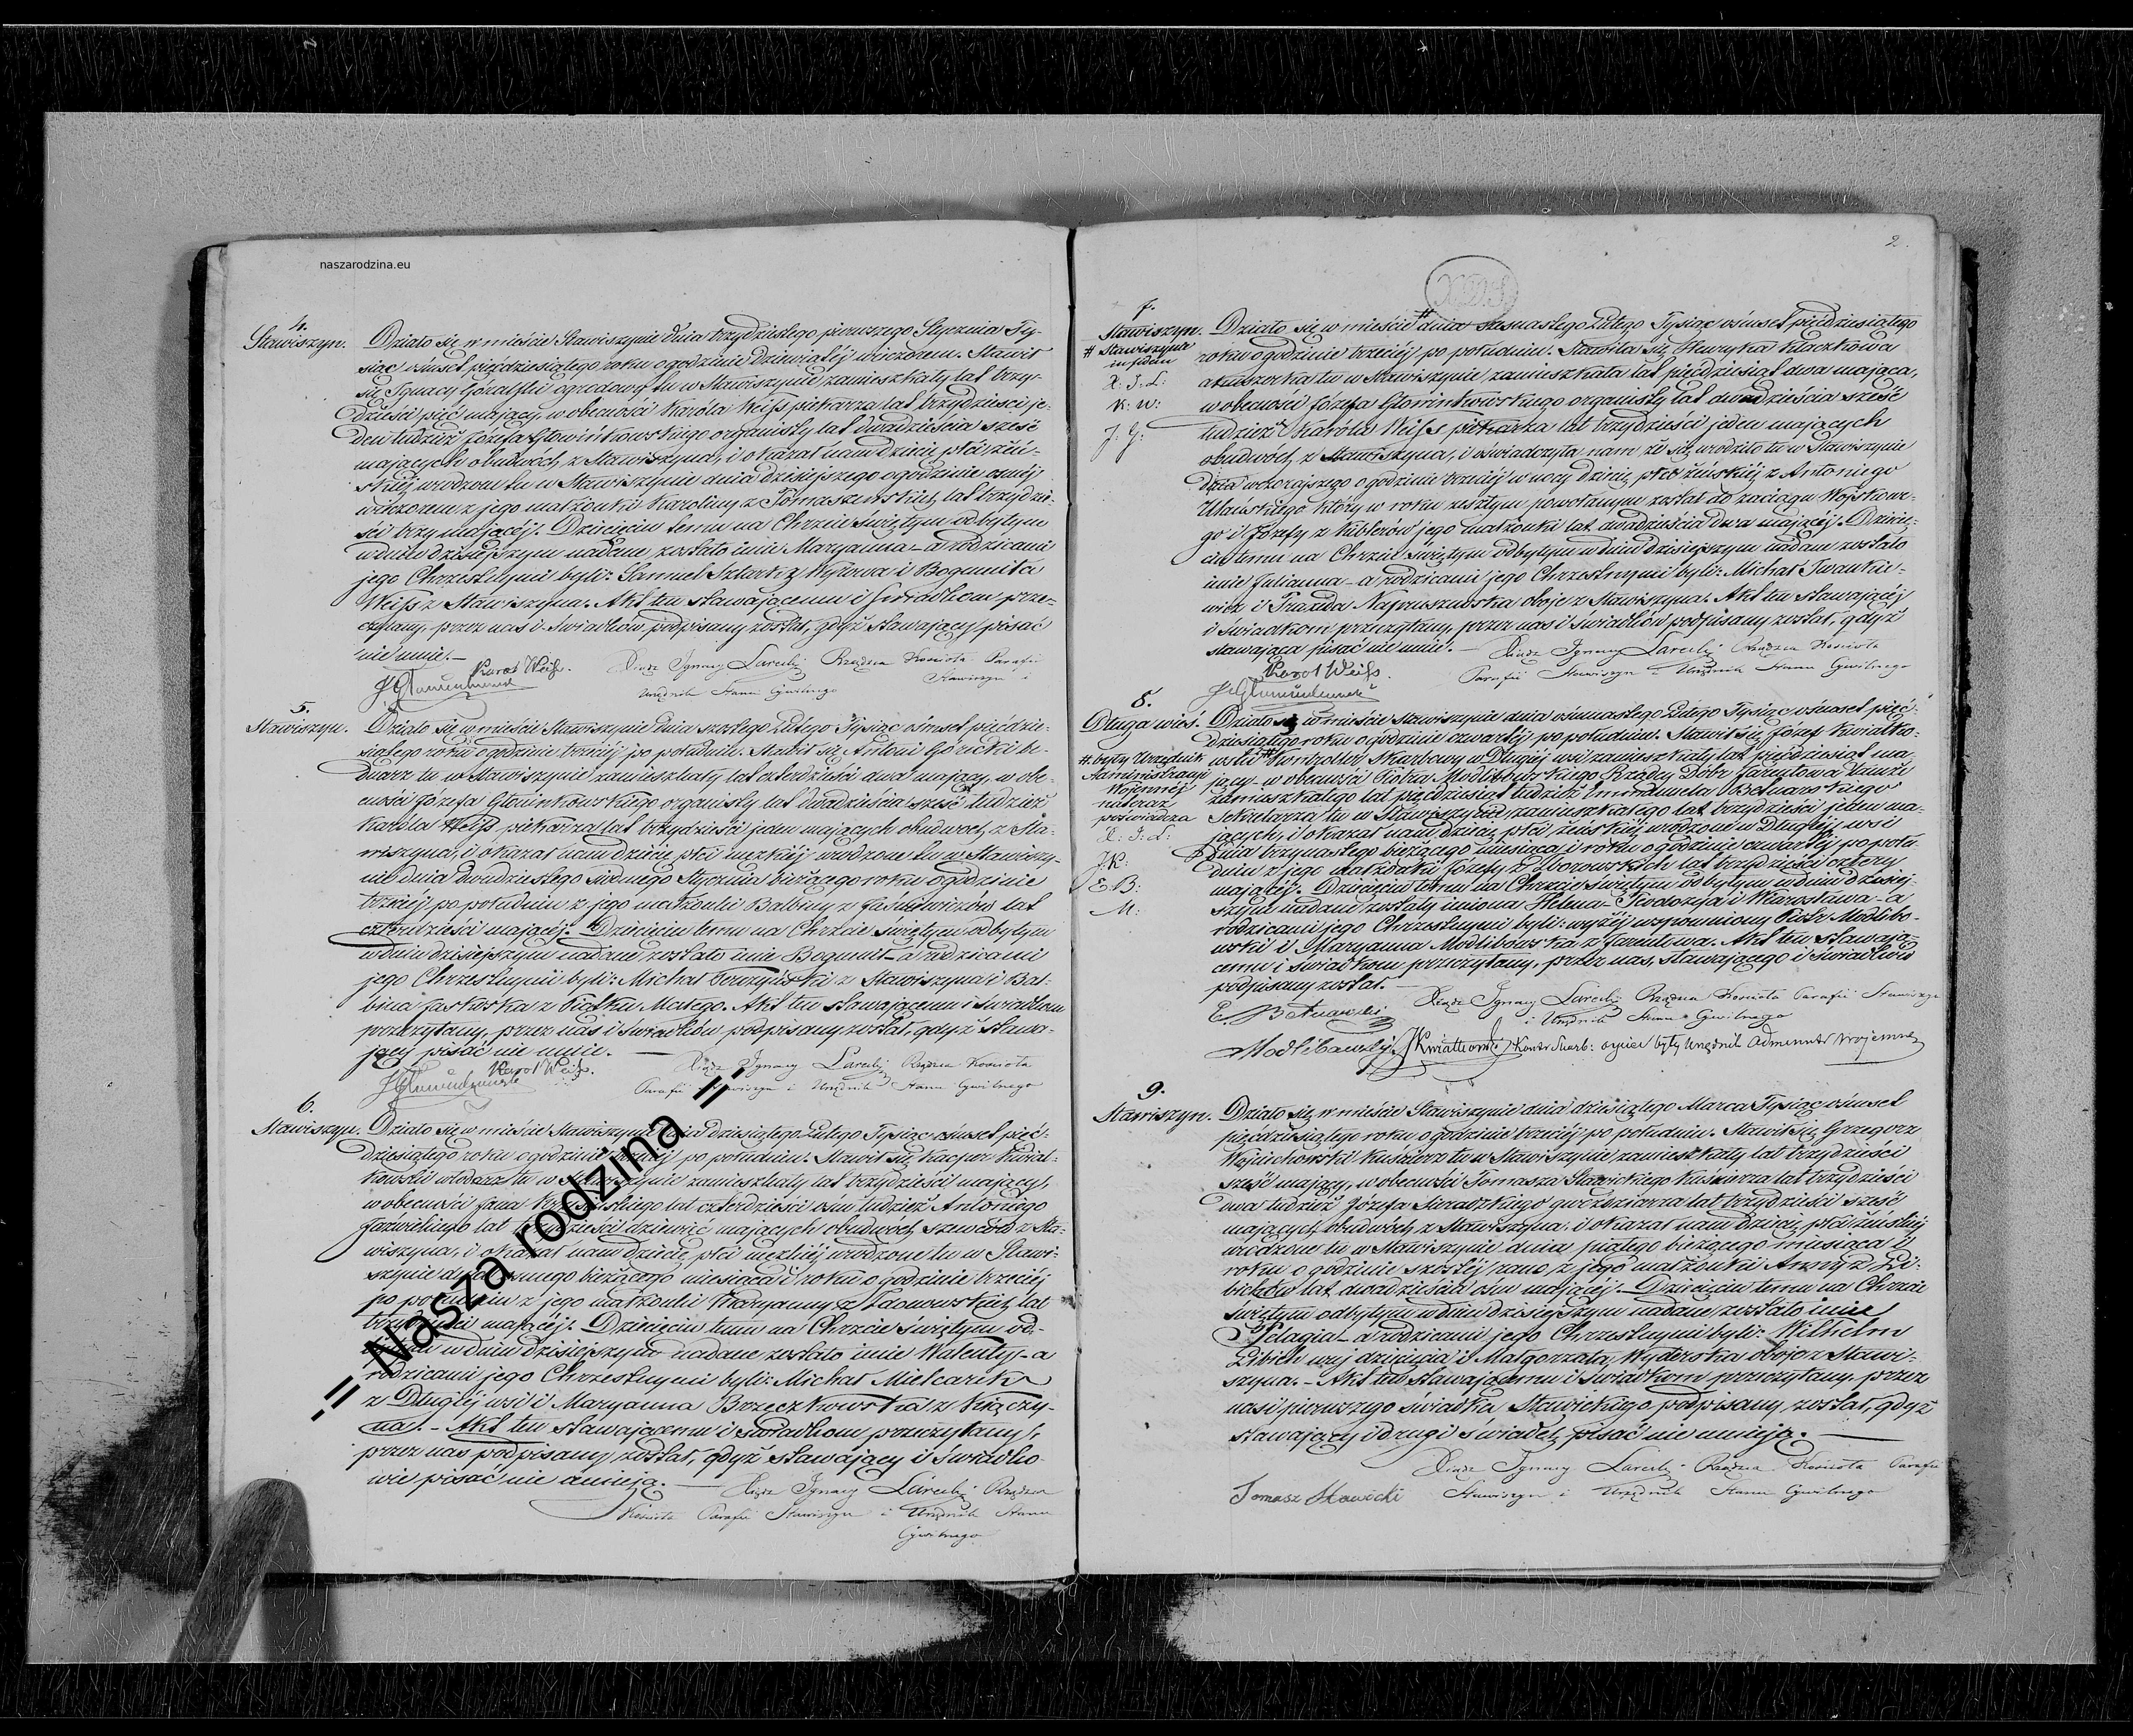 naszarodzina.eu
4.
Stawiszyn.
Działo się w mieście Stawiszynie dnia trzydziestego pierwszego Stycznia Ty-
siąc ośmset pięćdziesiątego roku o godzinie dziewiątéj wieczorem. Stawił
się Ignacy Góralski ogrodowy tu w Stawiszynie zamieszkały lat trzy-
dzieści pięć mający, w obecności Karóla Weiss piekarza lat trzydzieści je-
den tudzież Józefa Głowińkowskiego organisty lat dwadzieścia sześć
mających obudwóch z Stawiszyna, i okazał nam dziecię płci żeń-
skiéj urodzone tu w Stawiszynie dnia dzisiejszego o godzinie ósméj
wieczorem z jego małżonki Karoliny z Tomaszewskich lat trzydzie-
ści trzy mającéj. Dziecięciu temu na Chrzcie świętym odbytym
w dniu dzisiejszym nadane zostało imie Maryanna – a rodzicami
jego Chrzestnymi byli: Samuel Sztark z Wyrowa i Bogumiła
Weiss z Stawiszyna. Akt ten stawającemu i świadkom prze-
czytany, przez nas i świadków podpisany został, gdyż stawający pisać
nie umie. –
Karol Weiss. Xiądz Ignacy Rządca Kościoła Parafii
Stawiszyn i
Urzędnik Stanu Cywilnego
5.
Stawiszyn.
Działo się w mieście Stawiszynie dnia szóstego Lutego Tysiąc ośmset pięćdzie-
siątego roku o godzinie trzeciéj po południu. Stawił się Antoni Górecki be-
dnarz tu w Stawiszynie zamieszkały lat czterdzieści dwa mający, w obe-
cności Józefa Głowinkowskiego organisty lat dwadzieścia sześć tudzież
Karóla Weiss piekarza lat trzydzieści jeden mających obudwóch z Sta-
wiszyna, i okazał nam dziecię płci męzkiéj urodzone tu w Stawiszy-
nie dnia dwudziestego siódmego Stycznia bieżącego roku o godzinie
trzeciéj po południu z jego małżonki Balbiny z lat
czterdzieści mającéj. Dziecięciu temu na Chrzcie świętym odbytym
w dniu dzisiejszym nadane zostało imie Bogumił – a rodzicami
jego Chrzestnymi byli: Michał z Stawiszyna i Bal-
bina Jaskólska z Piątku Małego. Akt ten stawającemu i świadkom
przeczytany, przez nas i świadków podpisany został, gdyż stawa-
jący pisać nie umie. –
Karol Weiss. Xiądz Ignacy Rządca Kościoła
Parafii Stawiszyn i Urzędnik Stanu Cywilnego
6.
Stawiszyn.
Działo się w mieście Stawiszynie dnia dziesiątego Lutego Tysiąc ośmset pięć-
dziesiątego roku o godzinie trzeciéj po południu. Stawił się Kacper Kwiat-
kowski włodarz tu w Stawiszynie zamieszkały lat trzydzieści mający,
w obecności Jana lat czterdzieści ośm tudzież Antoniego
lat trzydzieści dziewięć mających obudwóch szewców z Sta-
wiszyna, i okazał nam dziecię płci męzkiéj urodzone tu w Stawi-
szynie dnia ósmego bieżącego miesiąca i roku o godzinie trzeciéj
po południu z jego małżonki Maryanny z Zdonowskich lat
trzydzieści mającéj. Dziecięciu temu na Chrzcie świętym od-
bytym w dniu dzisiejszym nadane zostało imie Walenty – a
rodzicami jego Chrzestnymi byli: Michał Mielcarek
z Długiéj wsi i Maryanna Brzęczkowska z Kiączy-
na. – Akt ten stawającemu i świadkom przeczytany,
przez nas podpisany został, gdyż stawający i świadko-
wie pisać nie umieją. –
Xiądz Ignacy Rządca
Kościoła Parafii Stawiszyn i Urzędnik Stanu
Cywilnego
= Nasza rodzina =
2.
7.
Stawiszyn.
# Stawiszynie
X. I. L:
K: W:
J. G:
Działo się w mieście # dnia Lutego Tysiąc ośmset pięćdziesiątego
roku o godzinie trzeciéj po południu. Stawiła się Henryka Kluczkowa
akuszerka tu w Stawiszynie zamieszkała lat pięćdziesiąt dwa mająca,
w obecności Józefa Głowinkowskiego organisty lat dwadzieścia sześć
tudzież Karóla Weiss piekarza lat trzydzieści jeden mających
obudwóch z Stawiszyna, i oświadczyła nam że się urodziło tu w Stawiszynie
dnia wczorajszego o godzinie trzeciéj w nocy dziecię płci żeńskiéj z Antoniego
Ulańskiego który w roku zeszłym powołanym został do zaciągu Wojskowe-
go i Józefy z Kiblerów jego małżonki lat dwadzieścia dwa mającéj. Dziecię-
ciu temu na Chrzcie świętym odbytym w dniu dzisiejszym nadane zostało
imie Julianna – a rodzicami jego Chrzestnymi byli: Michał Iwankie-
wicz i Praxeda Napruszewska oboje z Stawiszyna. Akt ten stawającéj
i świadkom przeczytany, przez nas i świadków podpisany został, gdyż
stawająca pisać nie umie. – Xiądz Ignacy Rządca Kościoła
Karol Weiss. Parafii Stawiszyn i Urzędnik Stanu Cywilnego
8.
Długa wieś.
# były Urzędnik
Administracyi
Wojennéj
poświadcza
X: I: L:
J.K:
E.B:
M:
Działo się w mieście Stawiszynie dnia ośmnastego Lutego Tysiąc ośmset pięć-
dziesiątego roku o godzinie czwartéj po południu. Stawił się Józef Kwiatko-
wski # Kontroler Skarbowy w Długiéj wsi zamieszkały lat pięćdziesiąt ma-
jący – w obecności Piotra Modlibowskiego Rządcy Dóbr Jarentowa tamże
zamieszkałego lat pięćdziesiąt tudzież Emanuela Bednarskiego
Sekretarza tu w Stawiszynie zamieszkałego lat trzydzieści jeden ma-
jących, i okazał nam dziecię płci żeńskiéj urodzone w Długiéj wsi
dnia trzynastego bieżącego miesiąca i roku o godzinie czwartéj po połu-
dniu z jego małżonki Józefy z Zborowskich lat trzydzieści cztery
mającéj. Dziecięciu temu na Chrzcie świętym odbytym w dniu dzisiej-
szym nadane zostały imiona Helena – Teodozya i Wiarosława – a
rodzicami jego Chrzestnymi byli: wyżéj wspomniony Piotr Modlibo-
wski i Maryanna Modlibowska z Jarentowa. Akt ten stawają-
cemu i świadkom przeczytany, przez nas, stawającego i świadków
podpisany został. –
Xiądz Ignacy Rządca Kościoła Parafii Stawiszyn
i Urzędnik Stanu Cywilnego
Modlibowski JKwiatkowski Kontr Skarb: ojciec były Urzędnik Administr Wojennéj
9.
Stawiszyn.
Działo się w mieście Stawiszynie dnia dziesiątego Marca Tysiąc ośmset
pięćdziesiątego roku o godzinie trzeciéj po południu. Stawił się Grzegorz
Wojciechowski Kuśnierz tu w Stawiszynie zamieszkały lat trzydzieści
sześć mający, w obecności Tomasza Sławickiego Kuśnierza lat trzydzieści
dwa tudzież Józefa Sieradzkiego gwoździarza lat trzydzieści sześć
mających obudwóch z Stawiszyna, i okazał nam dziecię płci żeńskiéj
urodzone tu w Stawiszynie dnia piątego bieżącego miesiąca i
roku o godzinie szóstéj rano z jego małżonki Anny z Li-
bichów lat dwadzieścia ośm mającéj. Dziecięciu temu na Chrzcie
świętym odbytym w dniu dzisiejszym nadane zostało imie
Pelagia – a rodzicami jego Chrzestnymi byli: Wilhelm
Libich wuj dziecięcia i Małgorzata Wyderska oboje z Stawi-
szyna. – Akt ten stawającemu i świadkom przeczytany, przez
nas i pierwszego świadka Sławickiego podpisany został, gdyż
stawający i drugi świadek pisać nie umieją. –
Xiądz Ignacy Rządca Kościoła Parafii
Tomasz Sławicki Stawiszyn i Urzędnik Stanu Cywilnego